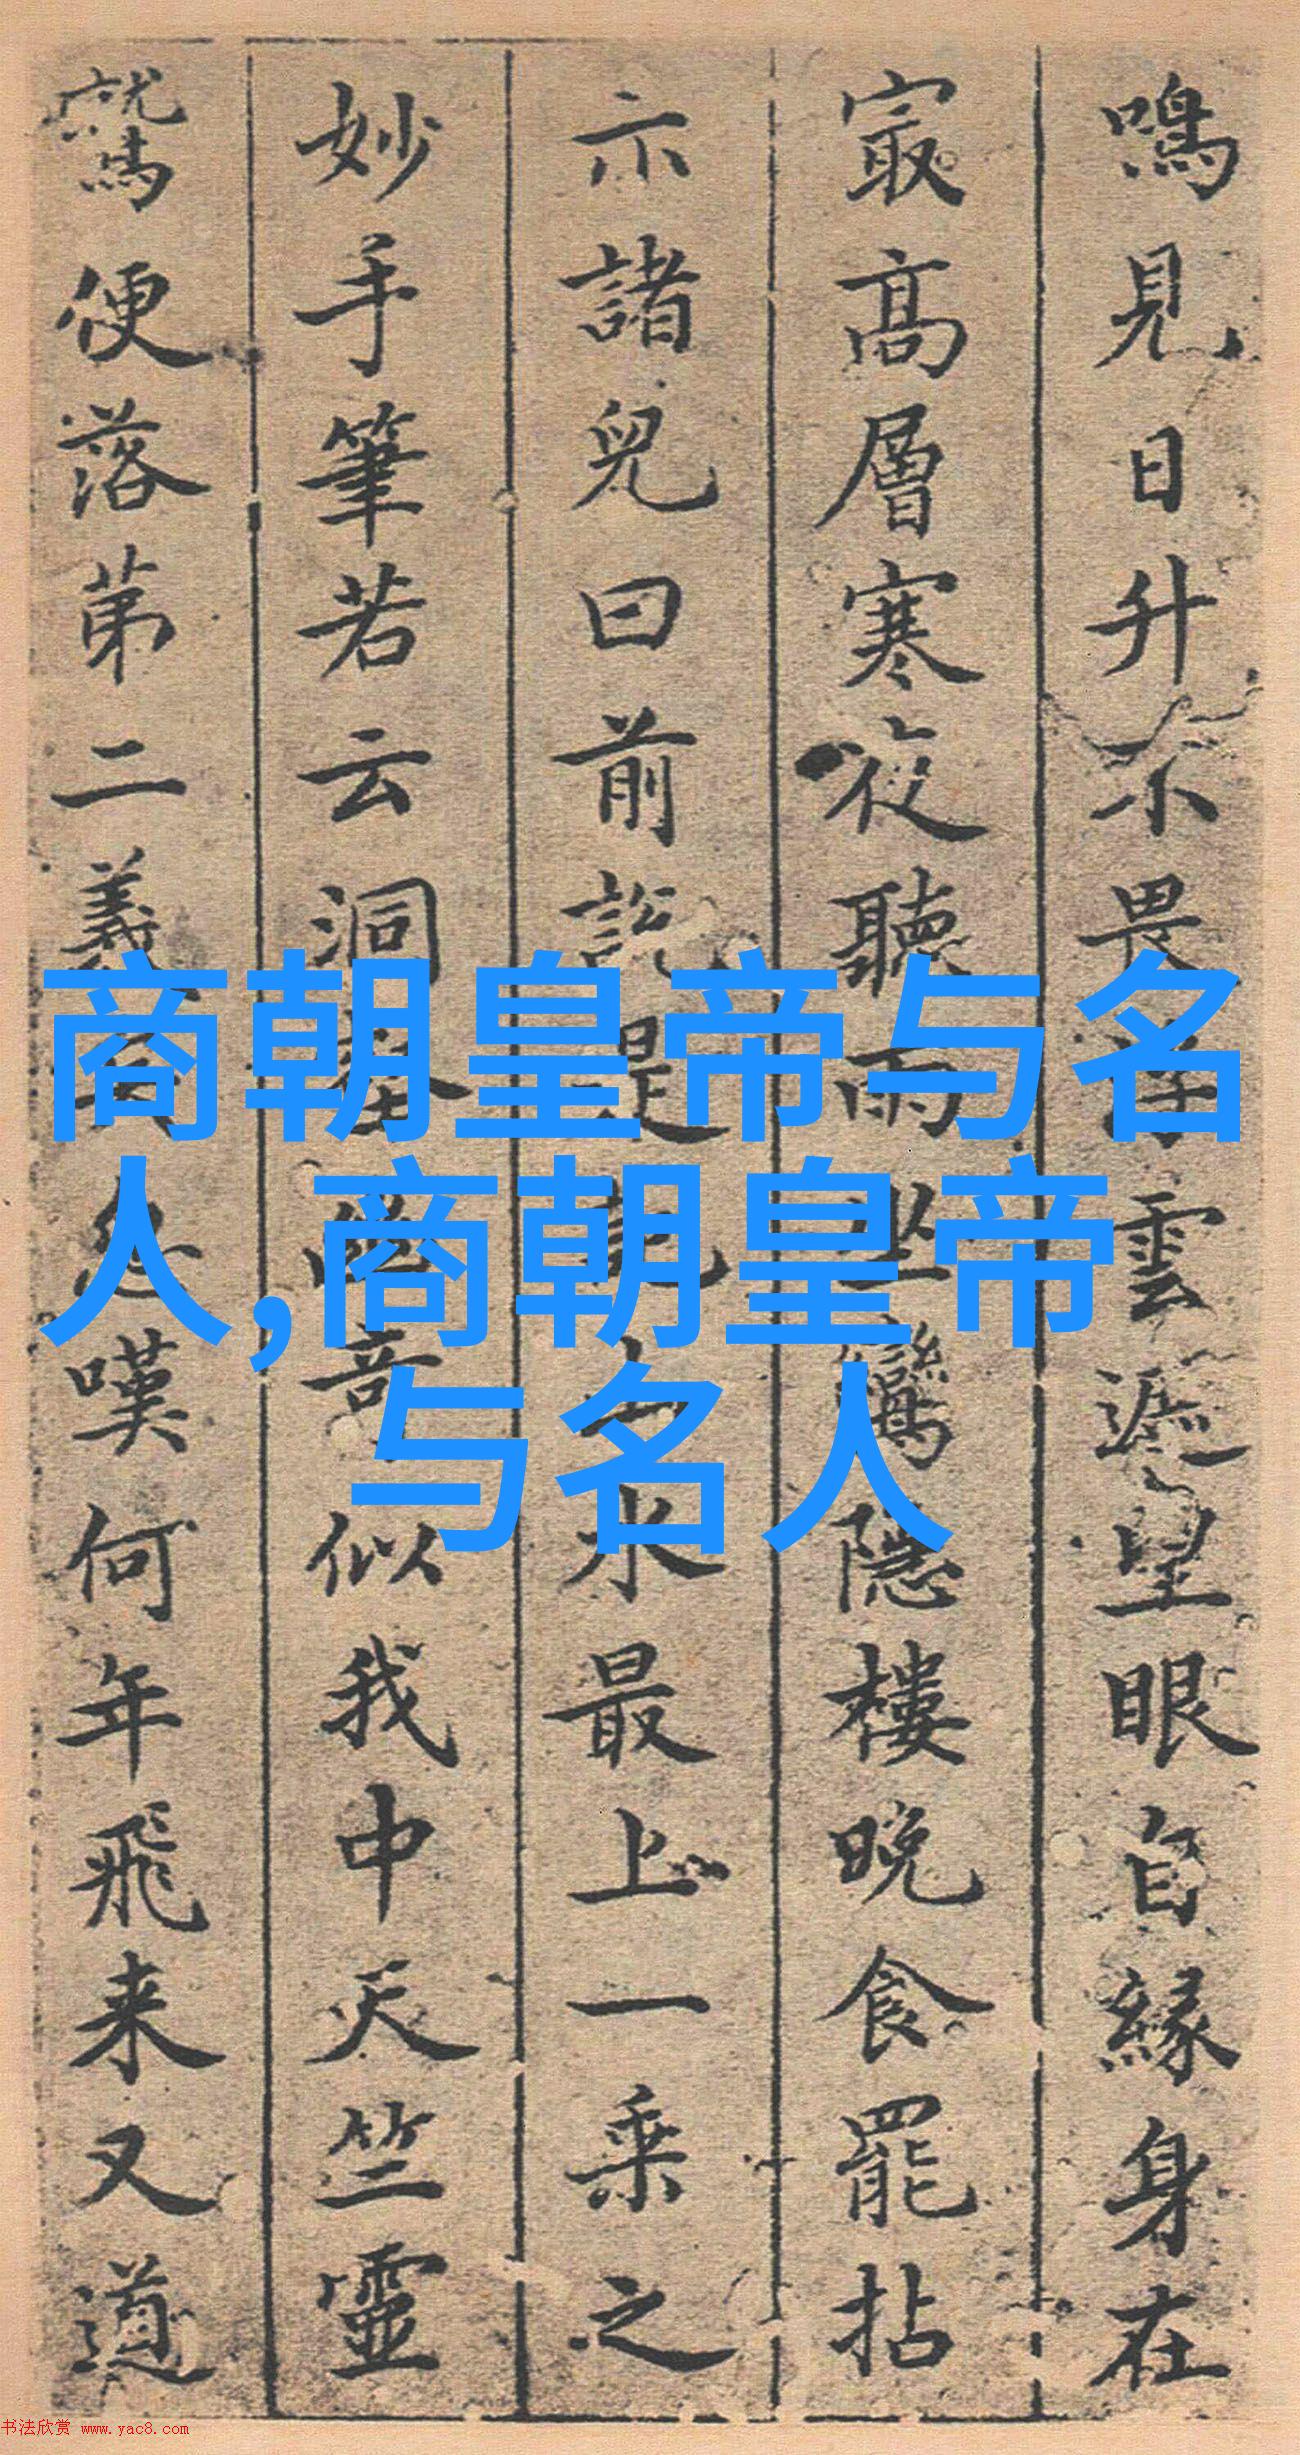 鳴見日升不畏浮雲遮望眼自緣身在
冣高層寒夜聽雨坐鸞隱樓晚食罷拈
示諸兒曰前説是山水最上一乘之
妙手筆若云洞壑奇似我中天竺靈
鷲便落苐二義矣忽嘆何年飛来又道
商朝皇帝与名
人,商朝皇帝
与名人
书法欣赏 www.yac8.com